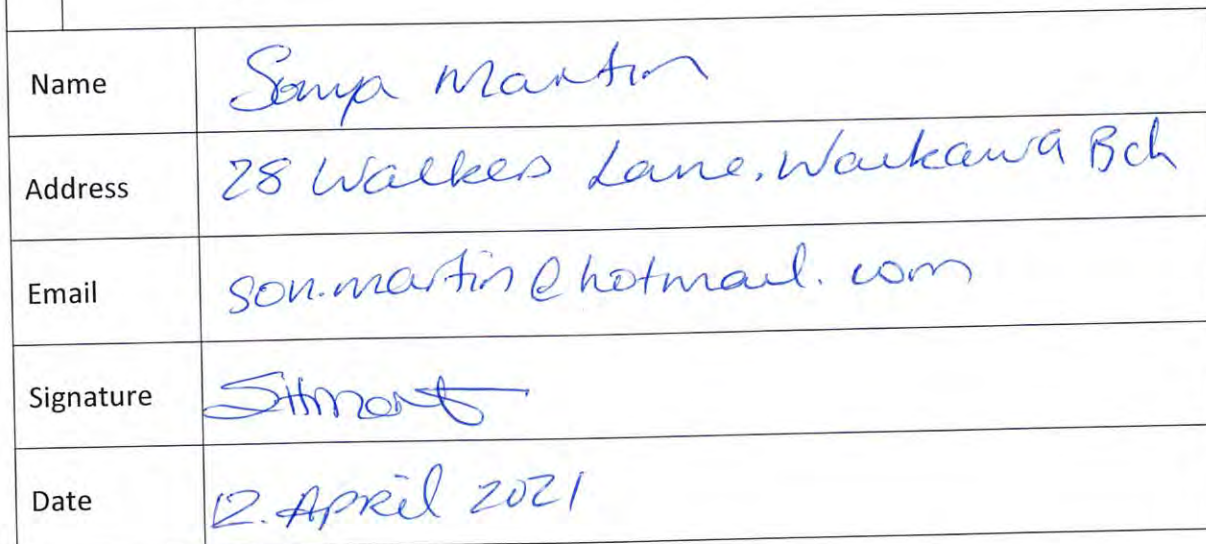 Name Sonya Martin
Address 28 Walkers Lane, Waikawa Bch
Email son.martin@hotmail.com
Signature
Date 12. April 2021